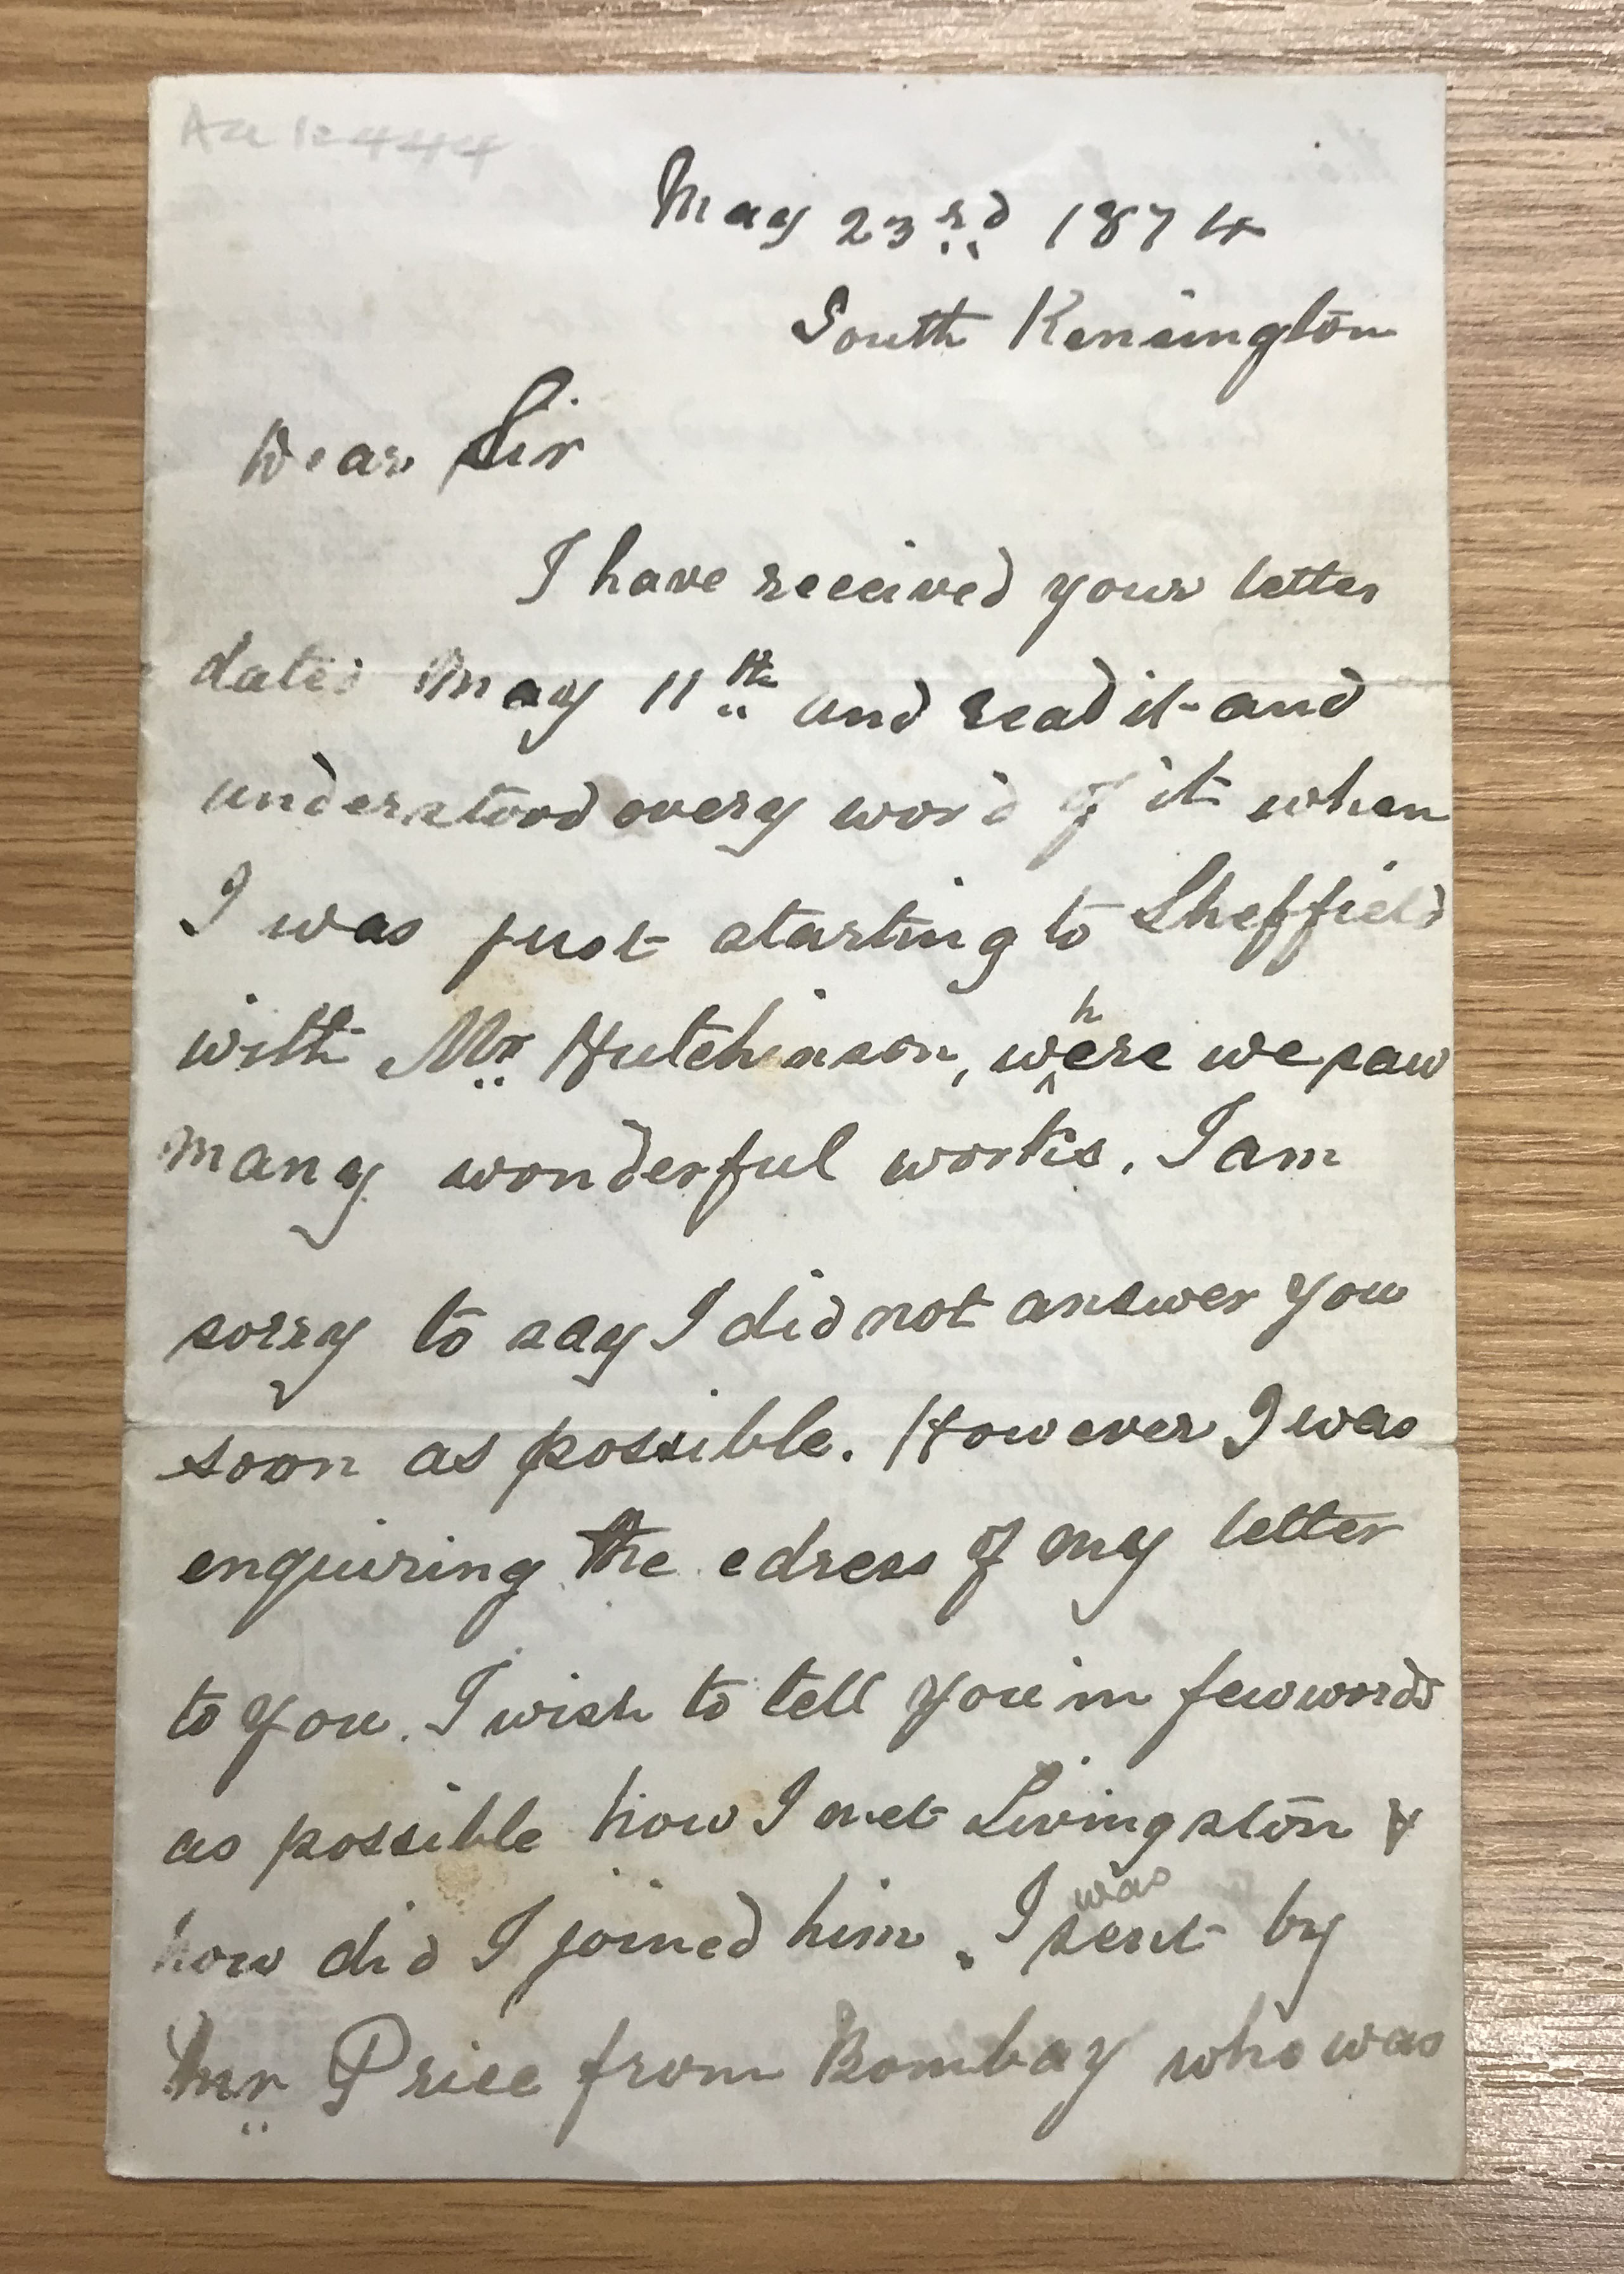 Acc 12444
May 23rd 1874
South Kensington
Dear Sir
I have received your letter
dated May 11th and read it and
understood every word of it when
I was just starting to Sheffield
with Mr Hutchinson, where we saw
many wonderful works. I am
sorry to say I did not answer you
soon as possible. However I was
enquiring the edress of my letter
to you. I wish to tell you in few words
as possible how I met Livingston &
how did I joined him. I was sent by
Mr Price from Bombay who was